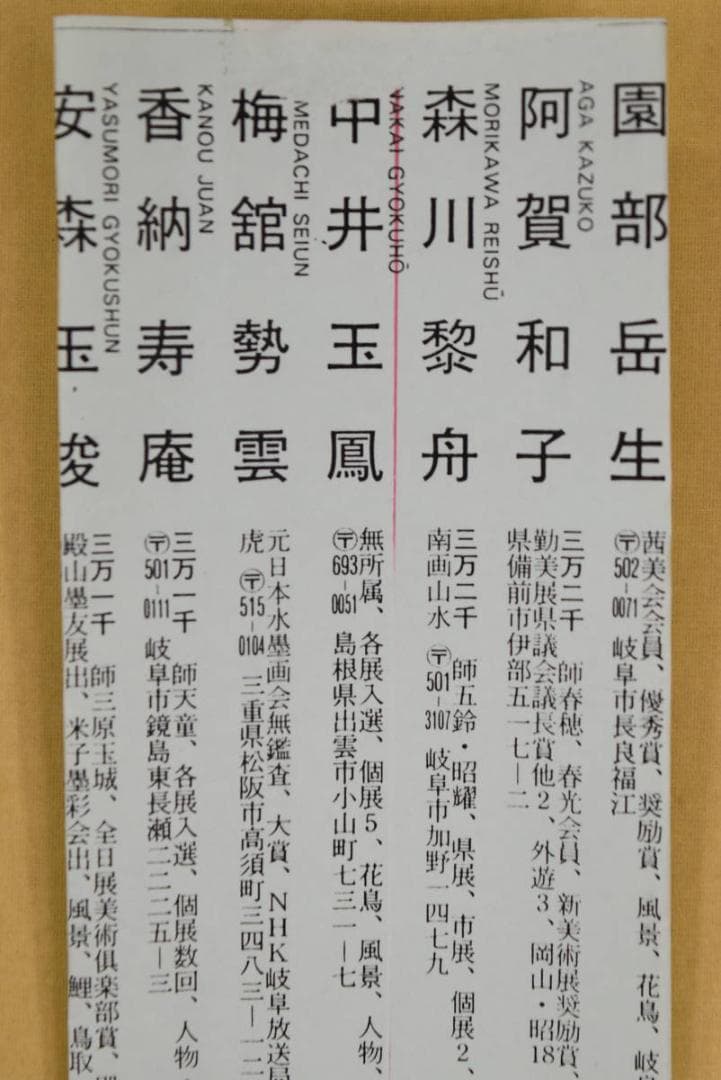 園部岳生
茜美会会員、優秀賞、奨励賞、風景、花鳥、岐
〒502-0071 岐阜市長良福江
AGA KAZUKO
阿賀和子
三万二千 師春穂、春光会員、新美術展奨励賞、
勤美展県議会議長賞他2、外遊3、岡山・昭18
県備前市伊部五一七—二
MORIKAWA REISHŪ
森川黎舟
三万二千 師五鈴・昭耀、県展、市展、個展2、
南画山水 〒501-3107 岐阜市加野一四七九
NAKAI GYOKUHŌ
中井玉鳳
無所属、各展入選、個展5、花鳥、風景、人物、
〒693-0051 島根県出雲市小山町七三一—七
MEDACHI SEIUN
梅舘勢雲
元日本水墨画会無鑑査、大賞、NHK岐阜放送局
虎 〒515-0104 三重県松阪市高須町三四八三—一二
KANOU JUAN
香納寿庵
三万一千 師天童、各展入選、個展数回、人物
〒501-0111 岐阜市鏡島東長瀬二二二五—三
YASUMORI GYOKUSHUN
安森玉俊
三万一千 師三原玉城、全日展美術倶楽部賞、
殿山墨友展出、米子墨彩会出、風景、鯉、鳥取